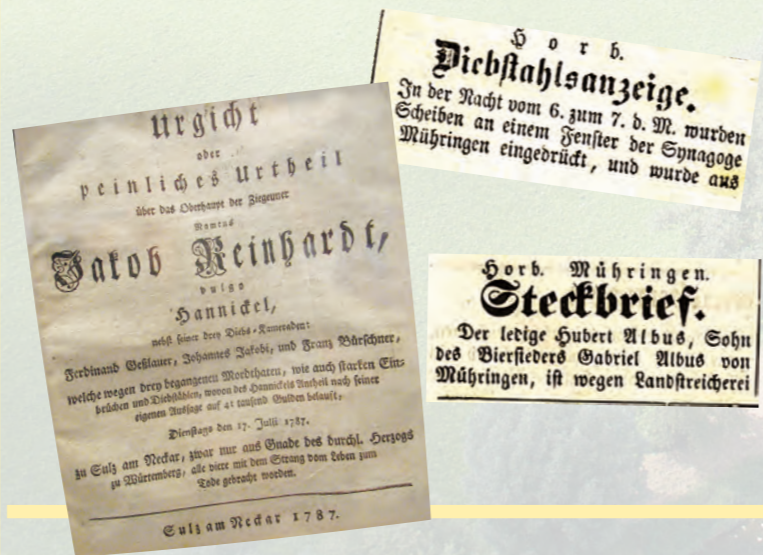 Urgicht
oder
peinliches Urtheil
über das Oberhaupt der Zigeuner
Namens
Jakob Reinhardt,
vulgo
Hannickel,
nebst seiner drey Diebs-Kameraden:
Ferdinand Geßlauer, Johannes Jakobi, und Franz Bürschner,
welche wegen drey begangenen Mordthaten, wie auch starken Ein-
brüchen und Diebstählen, wovon des Hannickels Antheil nach seiner
eigenen Aussage auf 41 tausend Gulden belauft,
Dienstags den 17. Julii 1787.
zu Sulz am Neckar, zwar nur aus Gnade des durchl. Herzogs
zu Würtemberg, alle viere mit dem Strang vom Leben zum
Tode gebracht worden.
Sulz am Neckar 1787.
Horb.
Diebstahlsanzeige.
In der Nacht vom 6. zum 7. d. M. wurden
Scheiben an einem Fenster der Synagoge
Mühringen eingedrückt, und wurde aus
Horb. Mühringen.
Steckbrief.
Der ledige Hubert Albus, Sohn
des Biersieders Gabriel Albus von
Mühringen, ist wegen Landstreicherei